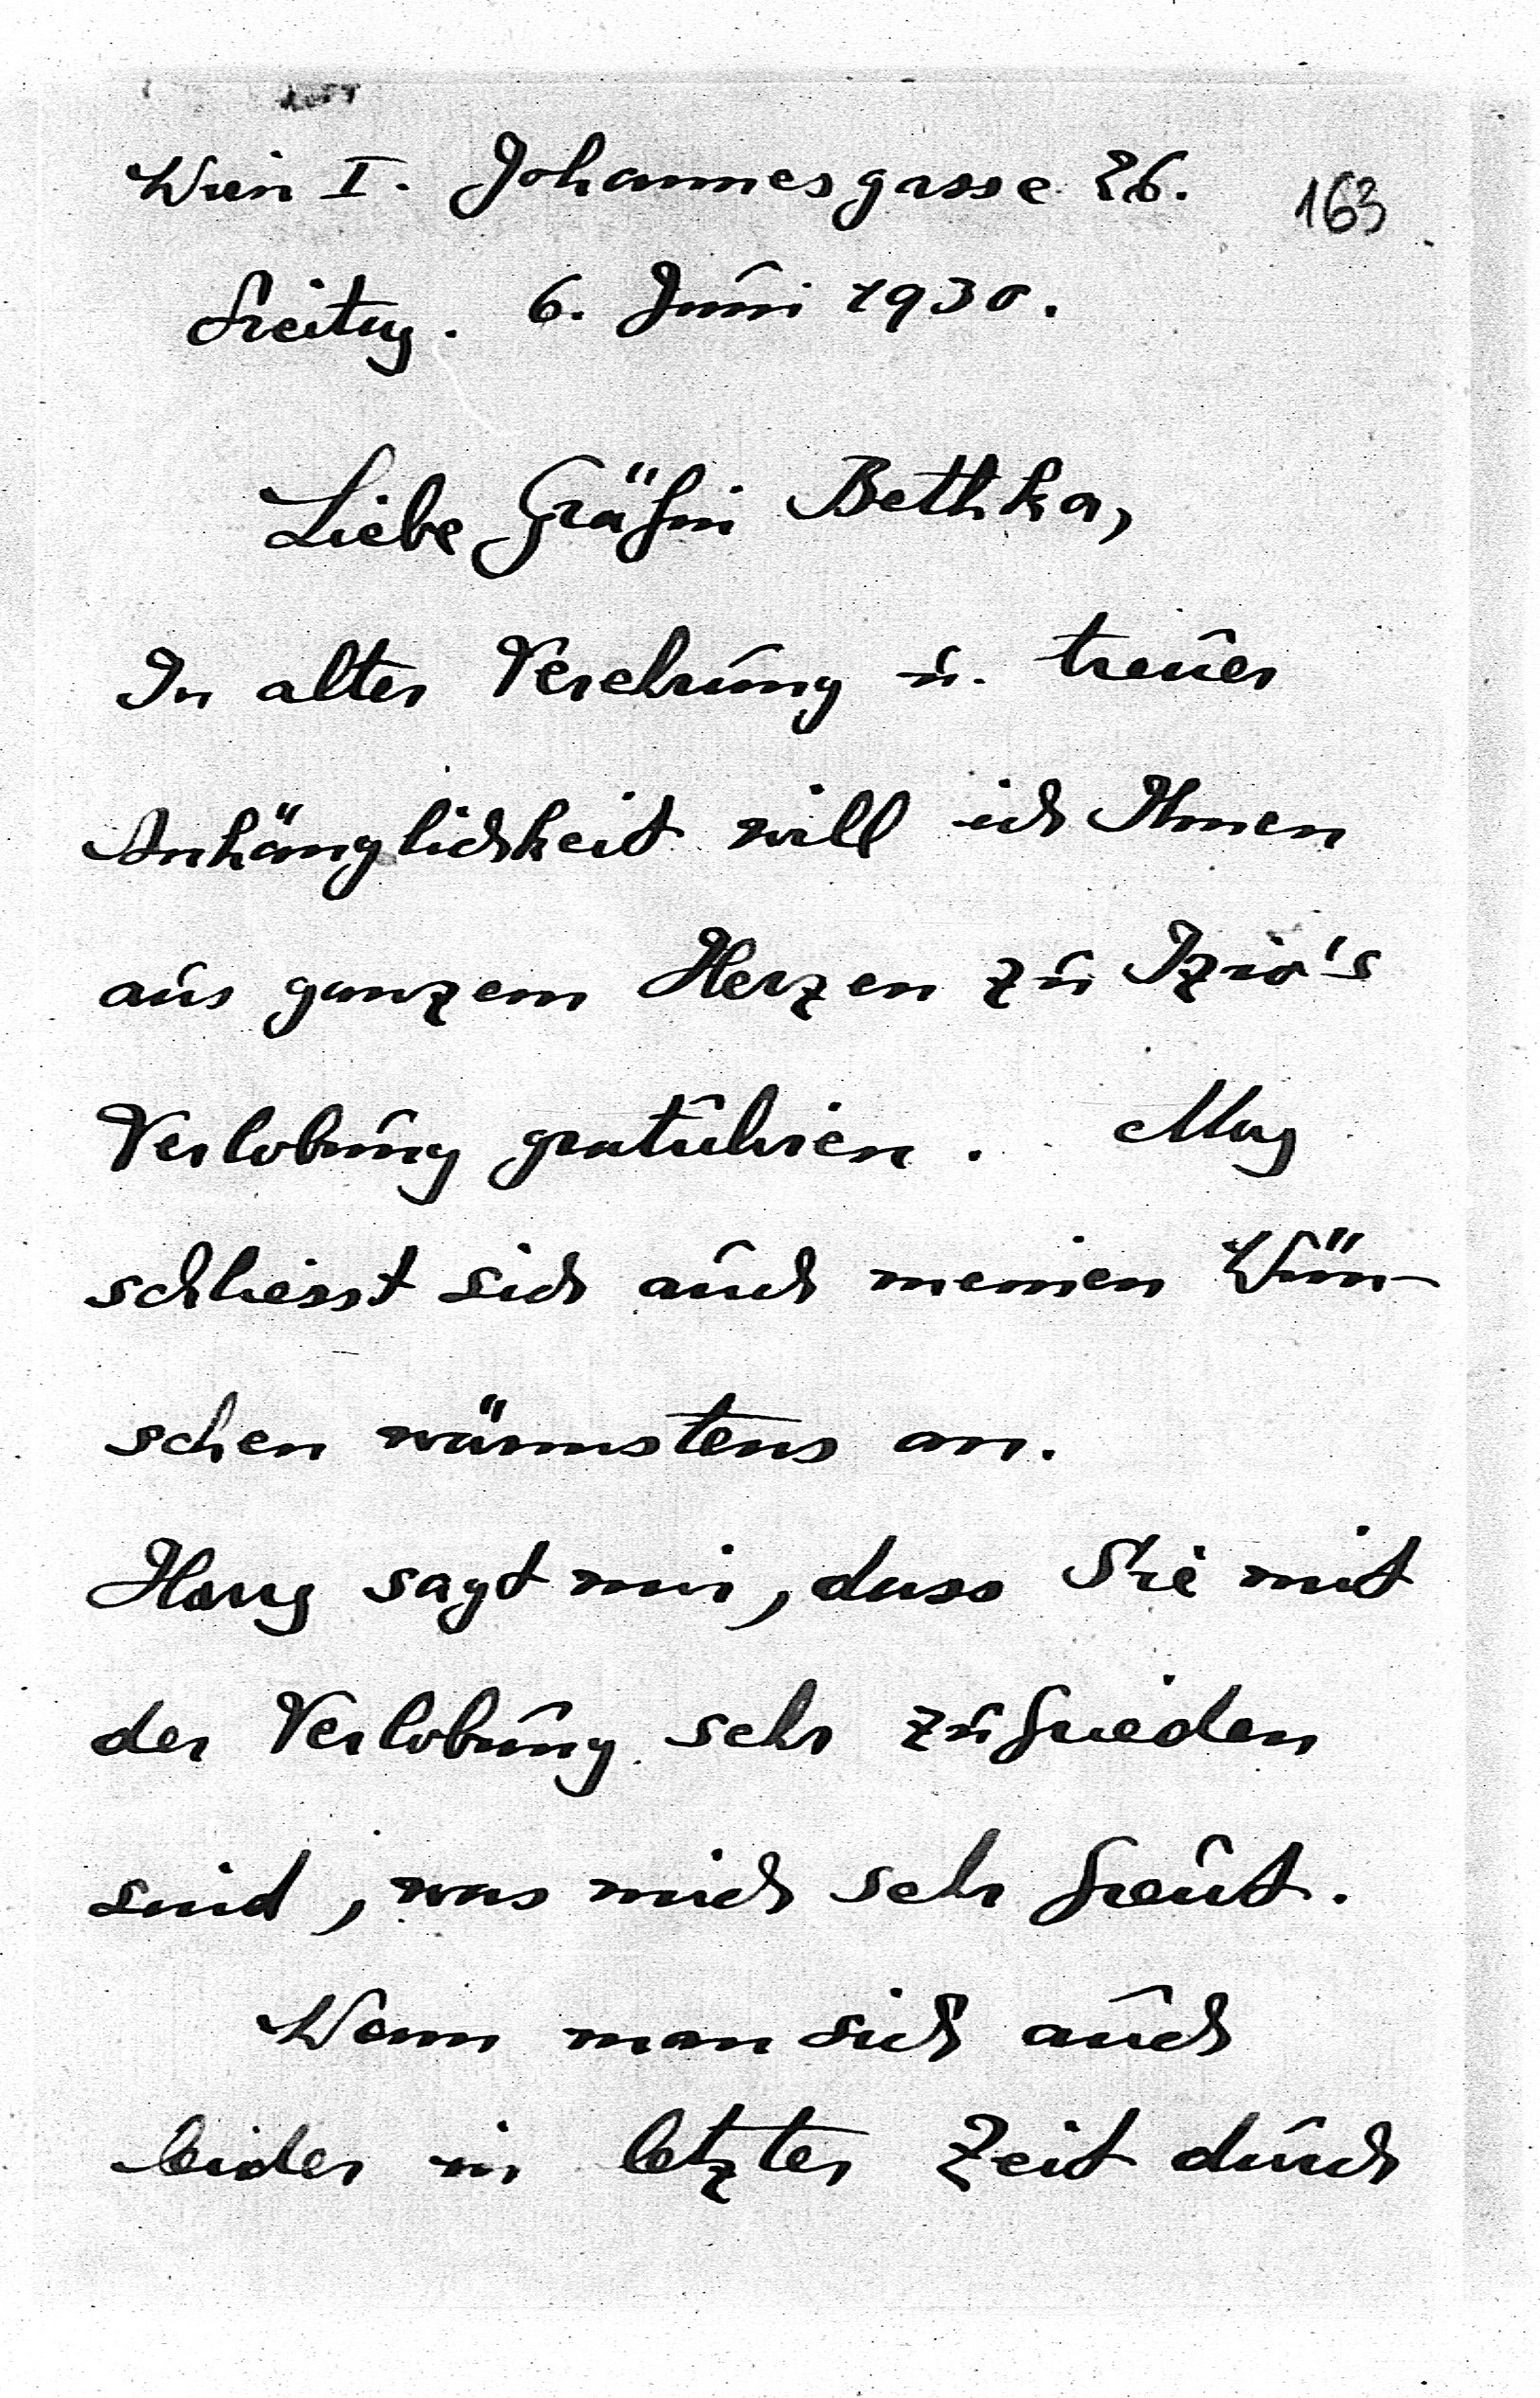 Wien I. Johannesgasse 26. 163
Freitag. 6. Juni 1930.
Liebe Gräfin Bethka,
In alter Verehrung u. treuer
Anhänglichkeit will ich Ihnen
aus ganzem Herzen zu Izio's
Verlobung gratulieren. May
schliesst sich auch meinen Wün-
schen wärmstens an.
sagt mir, dass Sie mit
der Verlobung sehr zufrieden
sind, was mich sehr freut.
Wenn man sich auch
leider in letzter Zeit durch